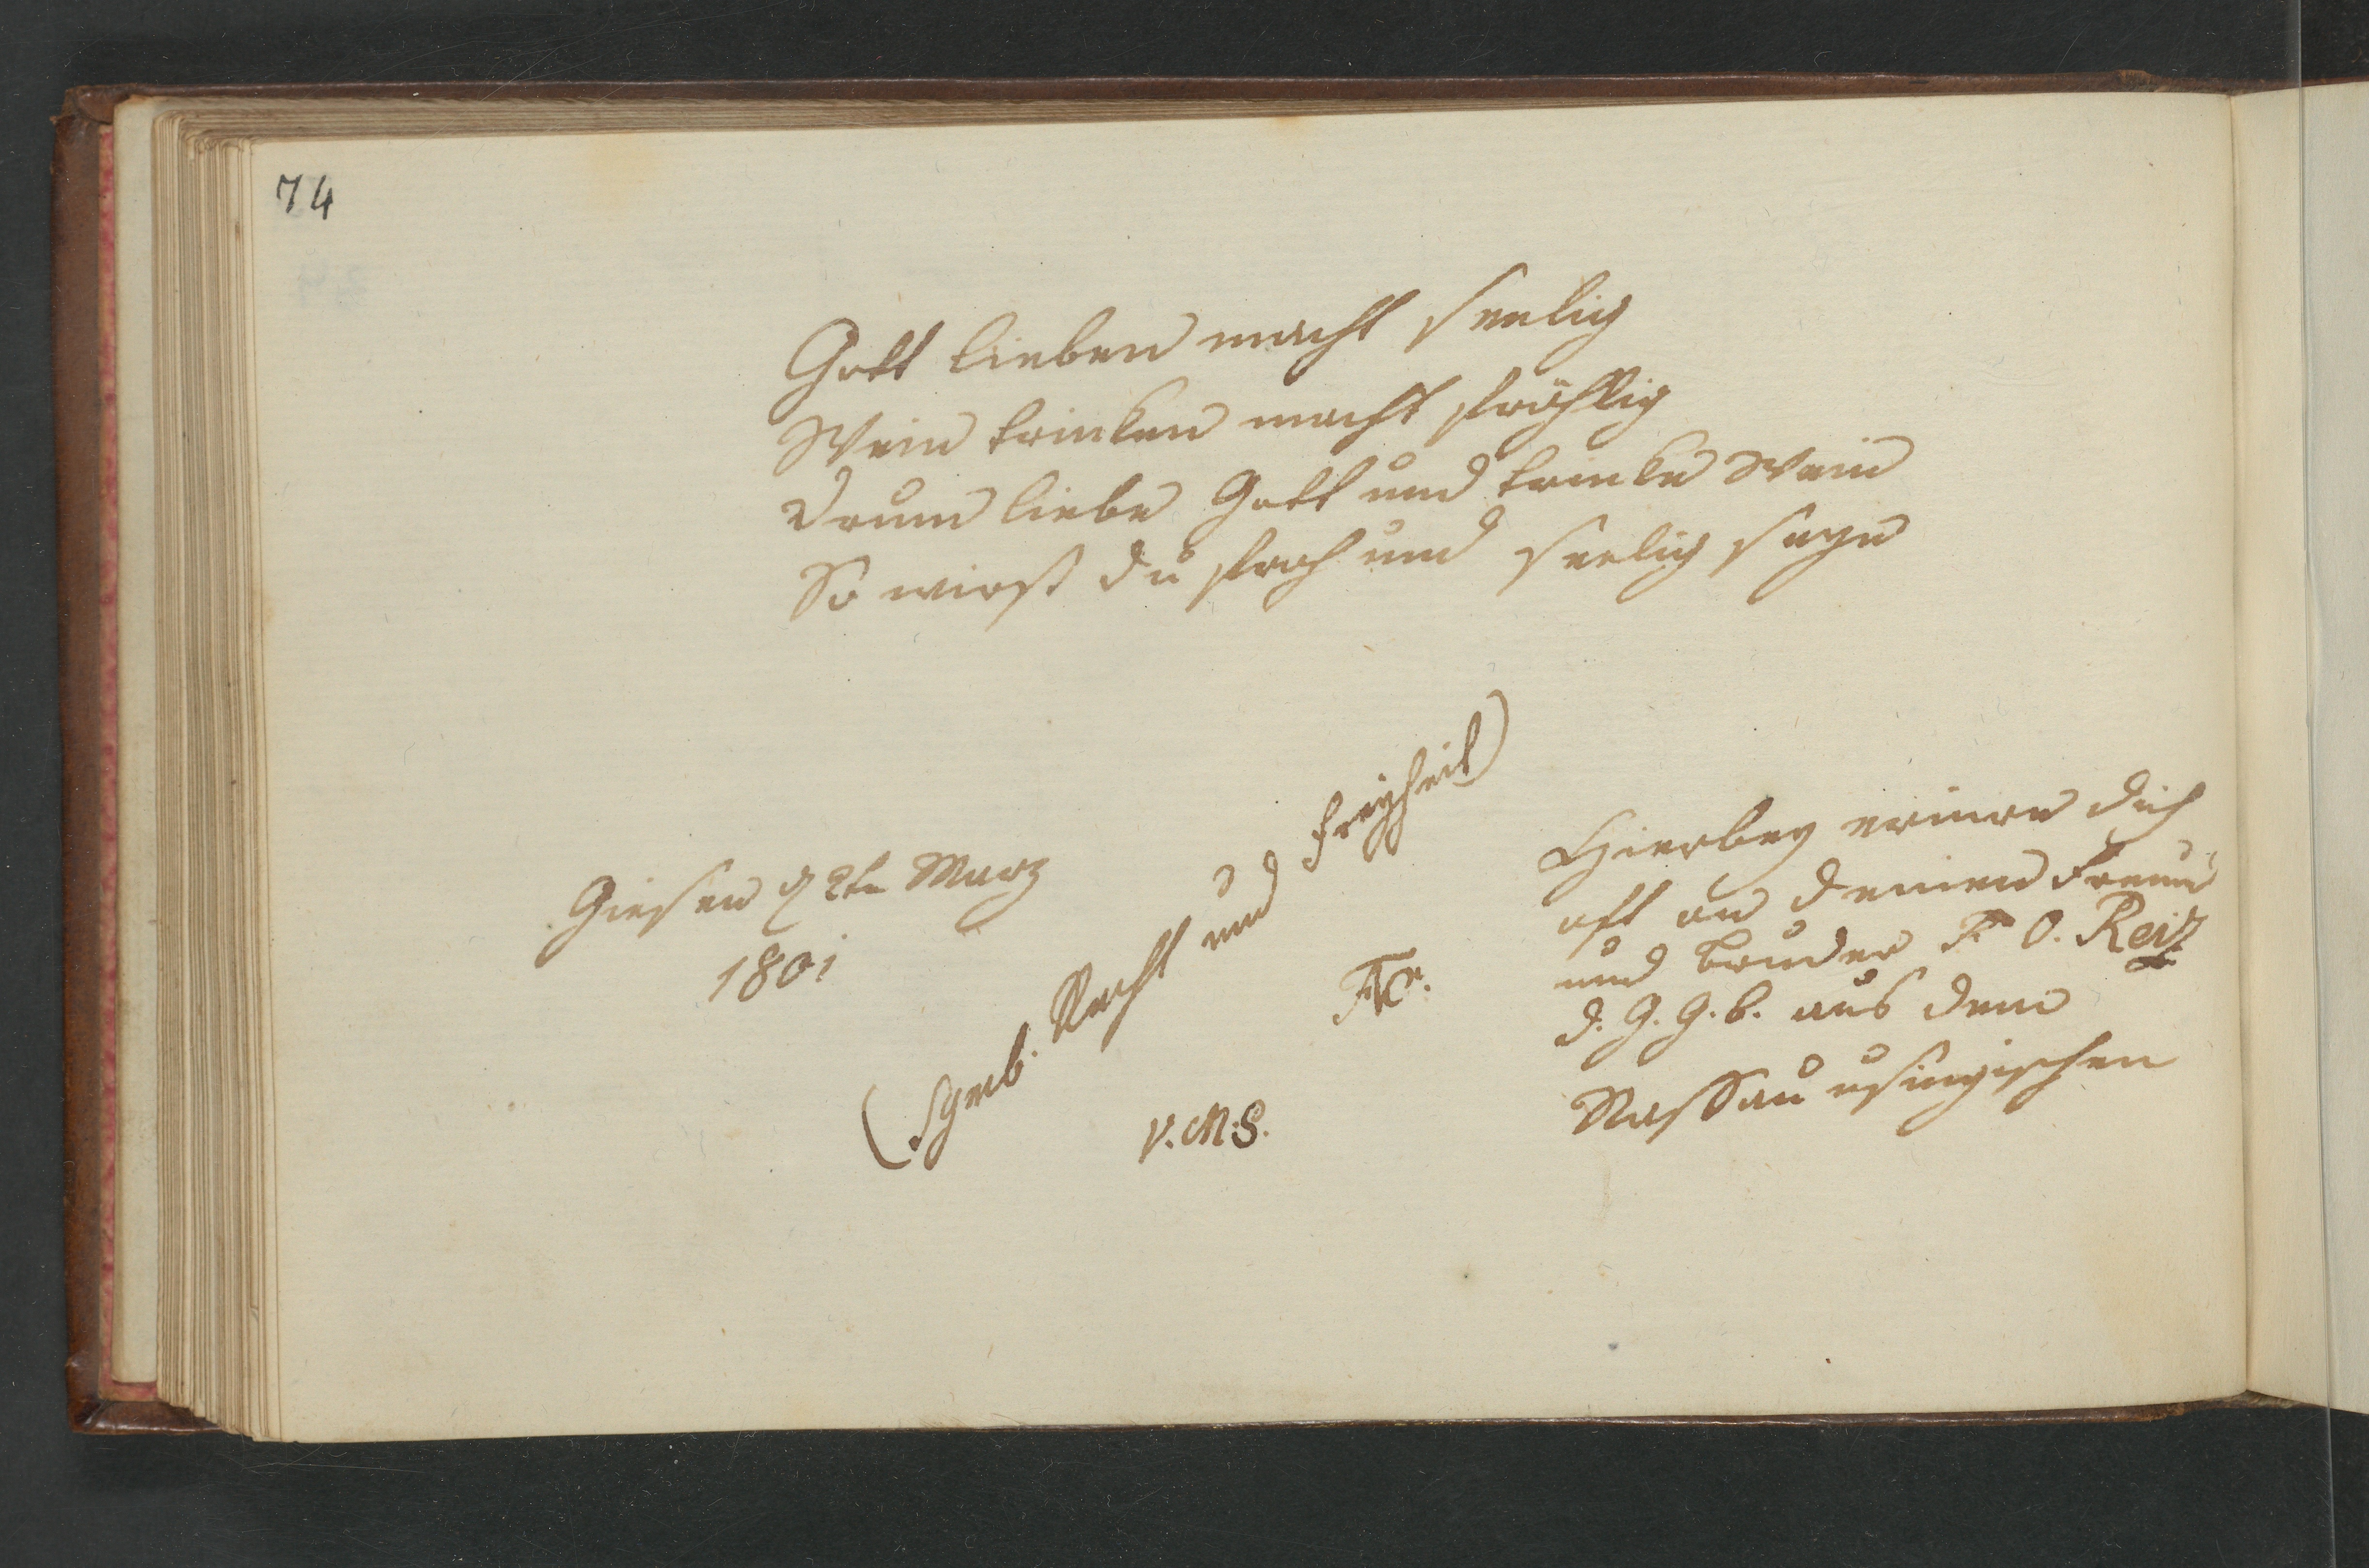 74
Gott lieben macht seelig
Wein trinken macht fröhlig
Drum liebe Gott und trinke Wein
So wirst du froh und seelig seyn
Giesen d 2tn Marz
1801
(Symb. Recht und Freyheit)
V. M. S.
Hierbey erinre dich
oft an deinen Freund
und Bruder F. O. Reiz
d. G. G. b. aus dem
Nassau usingischen